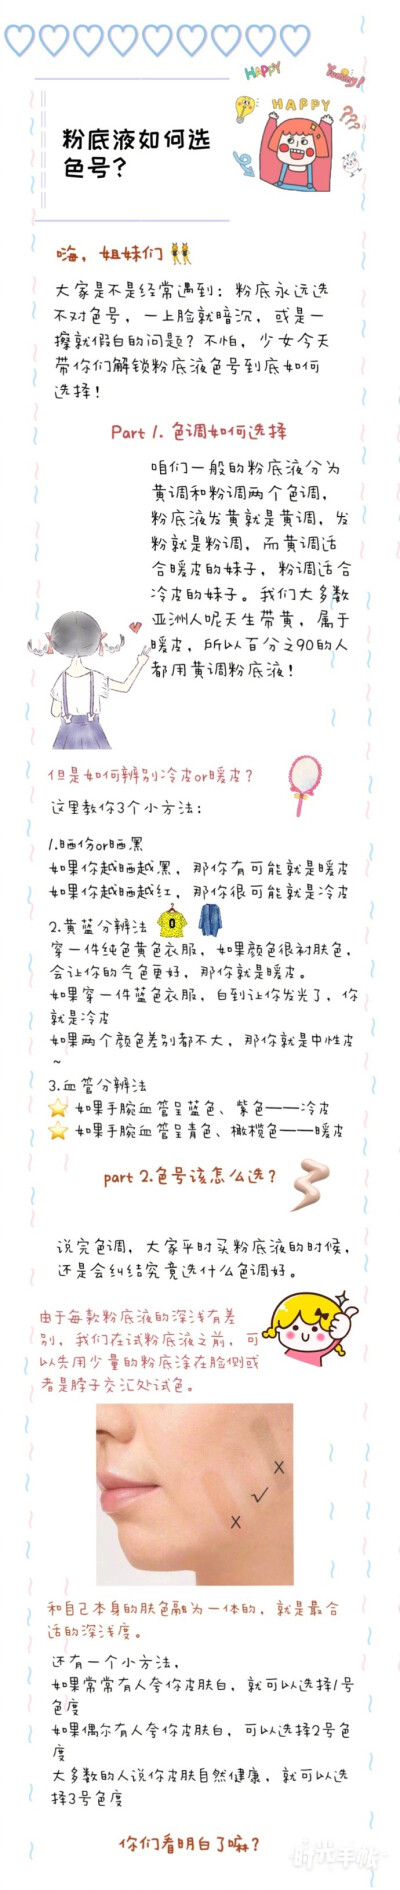 HAPPY
Yummy!
HAPPY
???
粉底液如何选
色号?
嗨，姐妹们
大家是不是经常遇到：粉底永远选
不对色号，一上脸就暗沉，或是一
擦就假白的问题？不怕，少女今天
带你们解锁粉底液色号到底如何
选择！
Part 1. 色调如何选择
咱们一般的粉底液分为
黄调和粉调两个色调，
粉底液发黄就是黄调，发
粉就是粉调，而黄调适
合暖皮的妹子，粉调适合
冷皮的妹子。我们大多数
亚洲人呢天生带黄，属于
暖皮，所以百分之90的人
都用黄调粉底液！
但是如何辨别冷皮or暖皮？
这里教你3个小方法：
1.晒伤or晒黑
如果你越晒越黑，那你有可能就是暖皮
如果你越晒越红，那你很可能就是冷皮
2.黄蓝分辨法
穿一件纯色黄色衣服，如果颜色很衬肤色，
会让你的气色更好，那你就是暖皮。
如果穿一件蓝色衣服，白到让你发光了，你
就是冷皮
如果两个颜色差别都不大，那你就是中性皮
~
3.血管分辨法
如果手腕血管呈蓝色、紫色——冷皮
如果手腕血管呈青色、橄榄色——暖皮
part 2.色号该怎么选？
说完色调，大家平时买粉底液的时候，
还是会纠结究竟选什么色调好。
由于每款粉底液的深浅有差
别，我们在试粉底液之前，可
以先用少量的粉底涂在脸侧或
者是脖子交汇处试色。
和自己本身的肤色融为一体的，就是最合
适的深浅度。
还有一个小方法，
如果常常有人夸你皮肤白，就可以选择1号
色度
如果偶尔有人夸你皮肤白，可以选择2号色
度
大多数的人说你皮肤自然健康，就可以选
择3号色度
你们看明白了嘛？
时光手帐